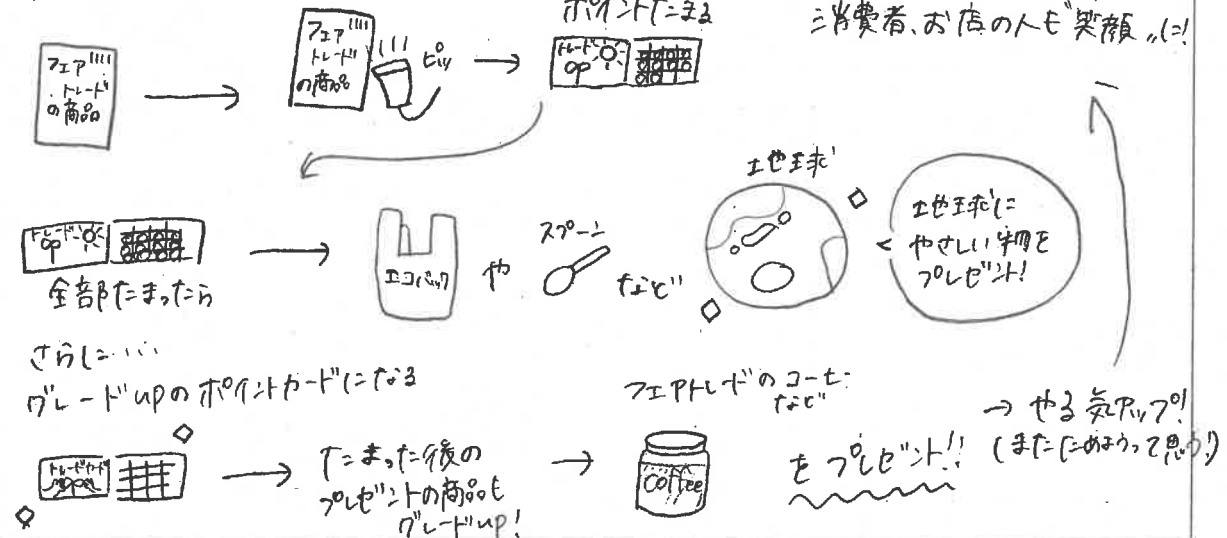 フェア
トレード
の商品
フェア
トレード
の商品
ピッ
ポイントたまる
トレード
op
消費者、お店の人も笑顔に!
トレード
op
全部たまったら
エコバック
や
スプーン
など
地球
地球に
やさしい物を
プレゼント!
さらに...
グレードupのポイントカードになる
トレードカード
たまった後の
プレゼントの商品も
グレードup!
フェアトレードのコーヒー
など
coffee
をプレゼント!!
→やる気アップ!
(またためようって思う!)